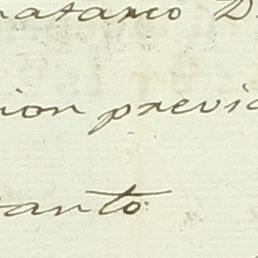 natario D
ion previa
tanto